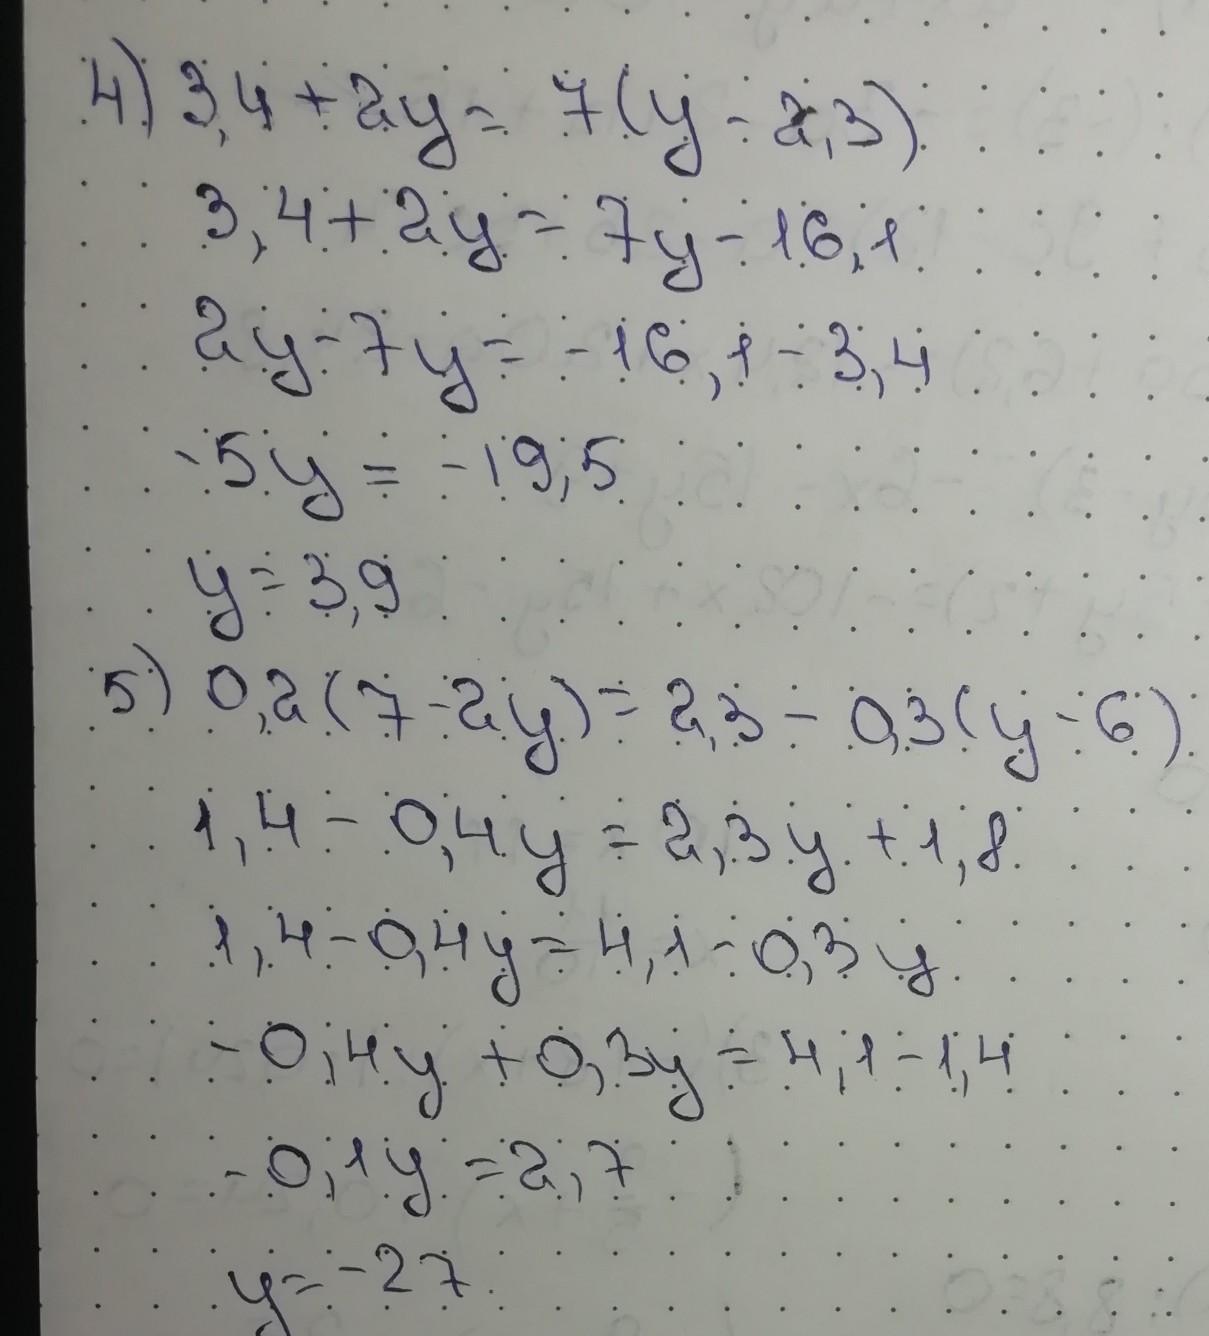 4) 3,4 + 2y = 7(y - 2,3)
3,4 + 2y = 7y - 16,1
2y - 7y = -16,1 - 3,4
-5y = -19,5
y = 3,9
5) 0,2(7 - 2y) = 2,3 - 0,3(y - 6)
1,4 - 0,4y = 2,3y + 1,8
1,4 - 0,4y = 4,1 - 0,3y
-0,4y + 0,3y = 4,1 - 1,4
-0,1y = 2,7
y = -27